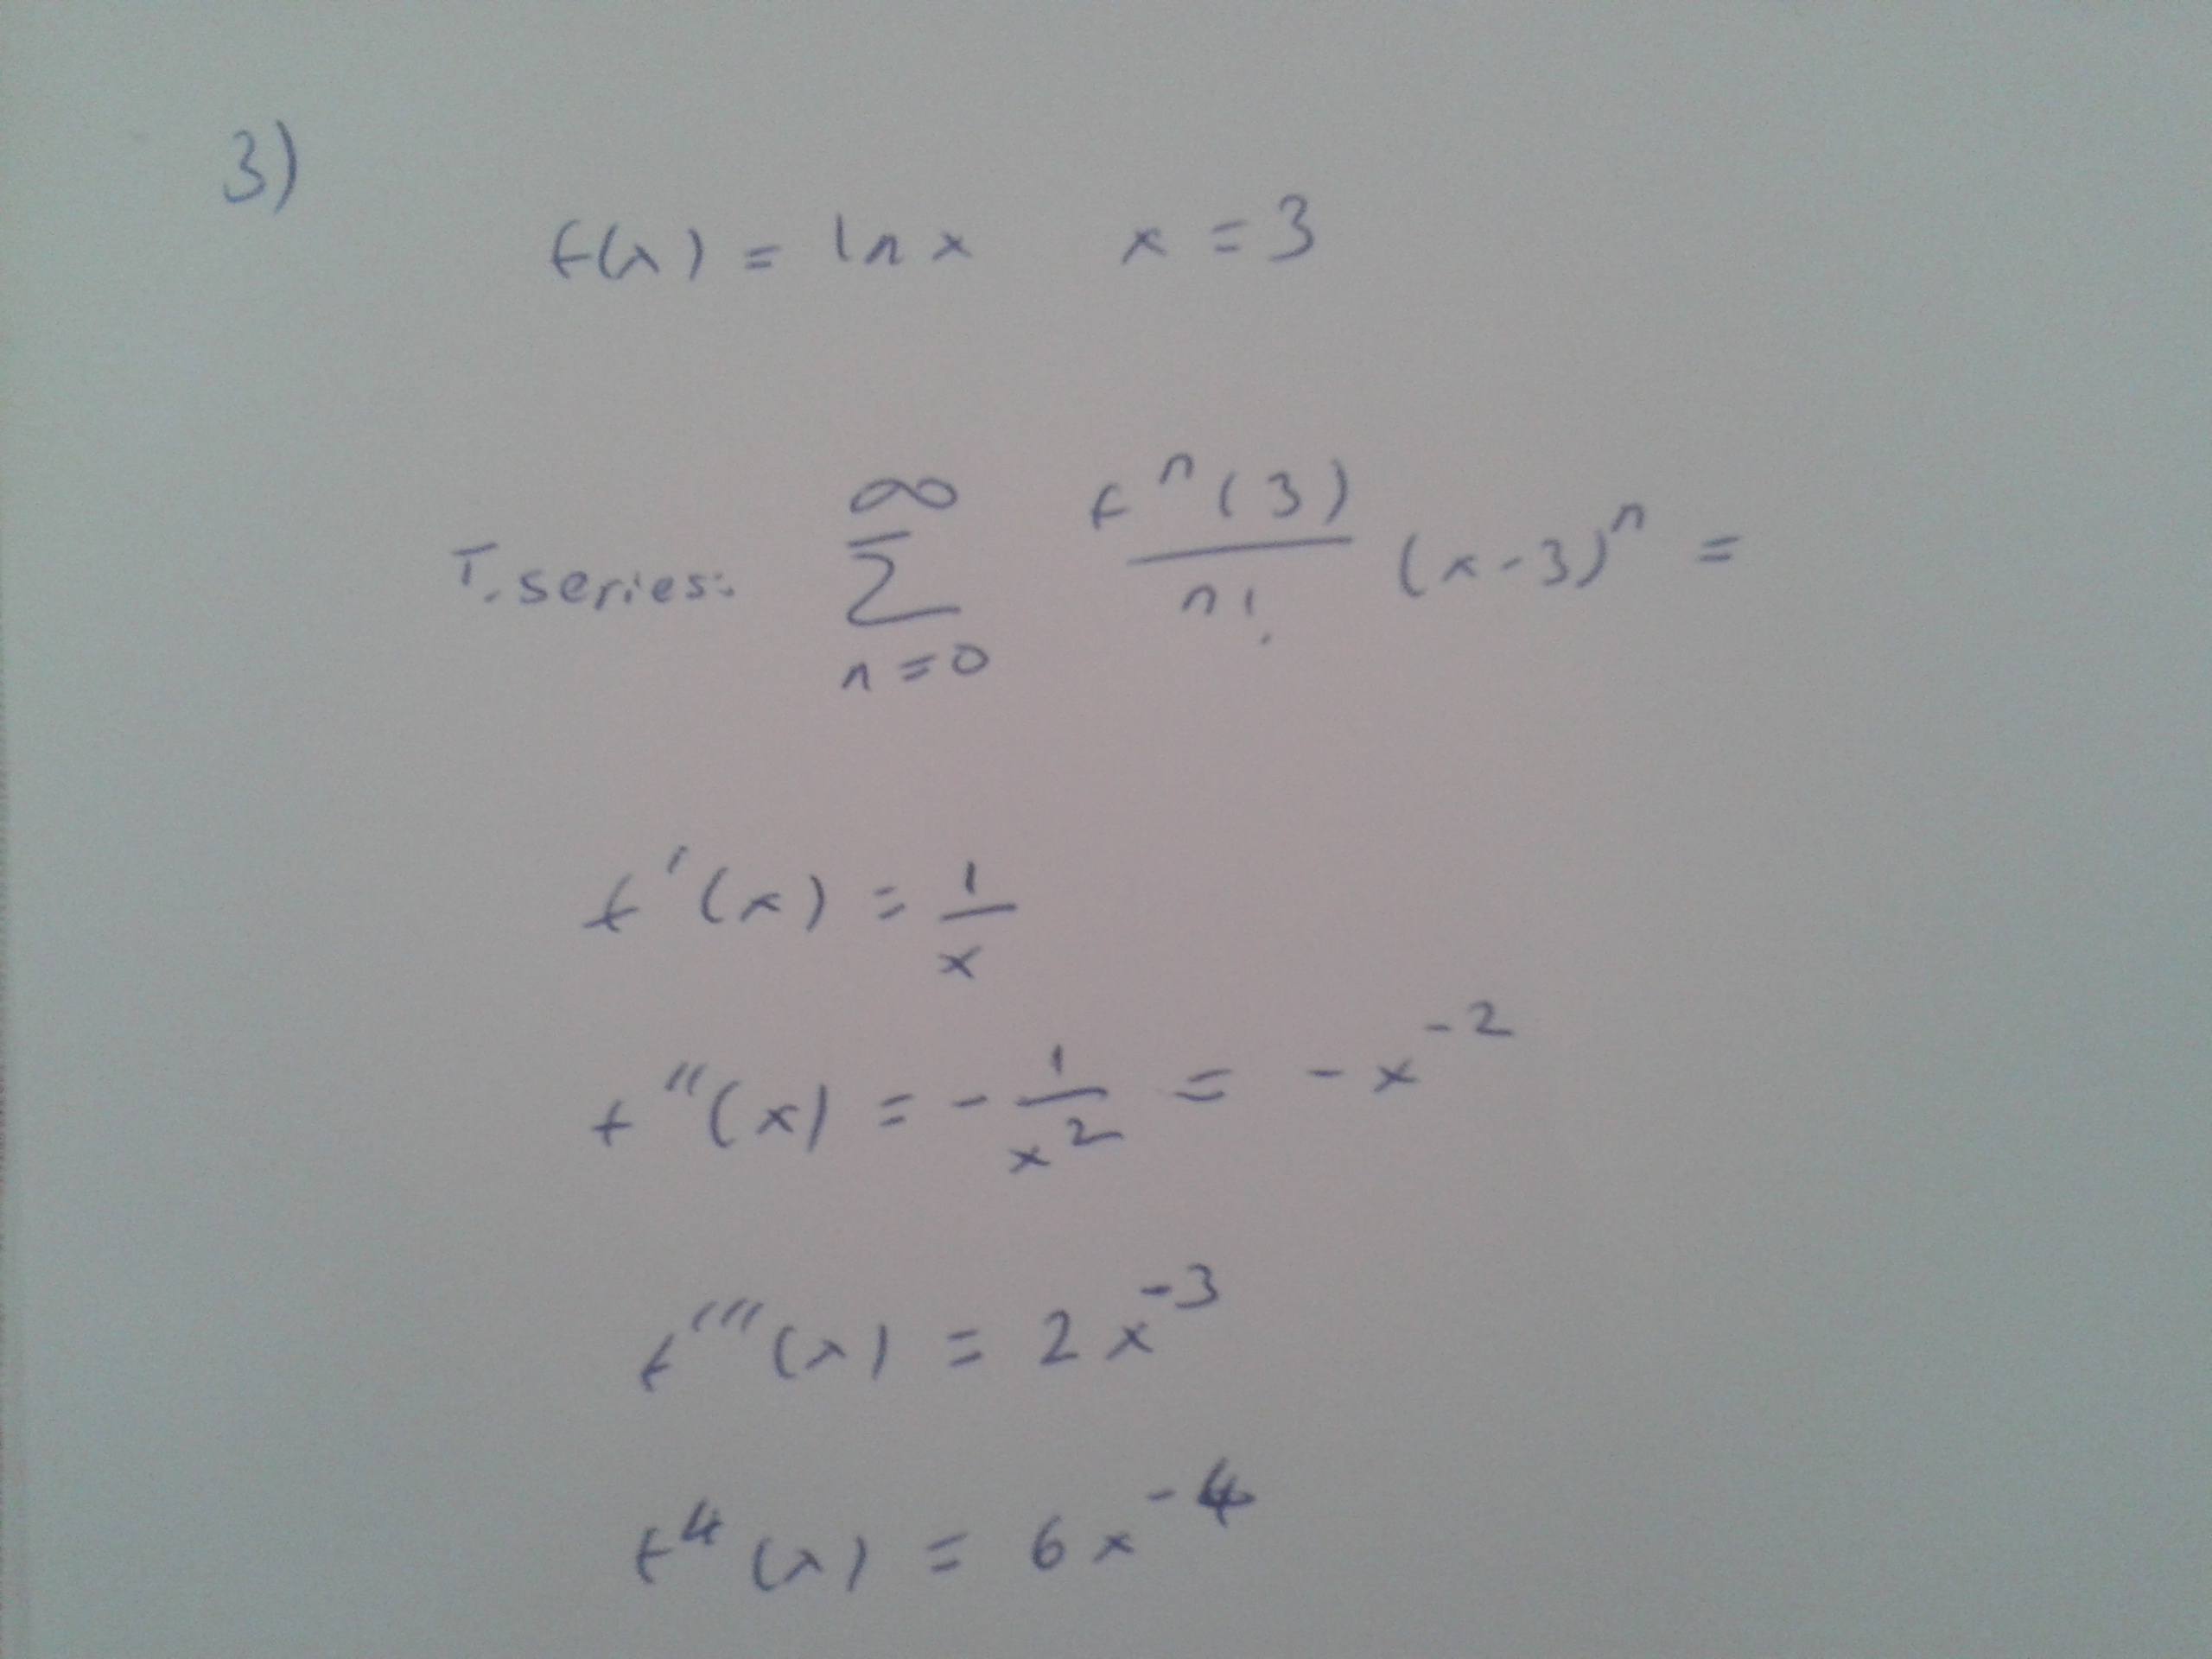 3)
f(x) = ln x   x = 3
T. series: ∑_{n=0}^{∞} \frac{f^n(3)}{n!} (x-3)^n =
f'(x) = \frac{1}{x}
f''(x) = -\frac{1}{x^2} = -x^{-2}
f'''(x) = 2x^{-3}
f^4(x) = 6x^{-4}